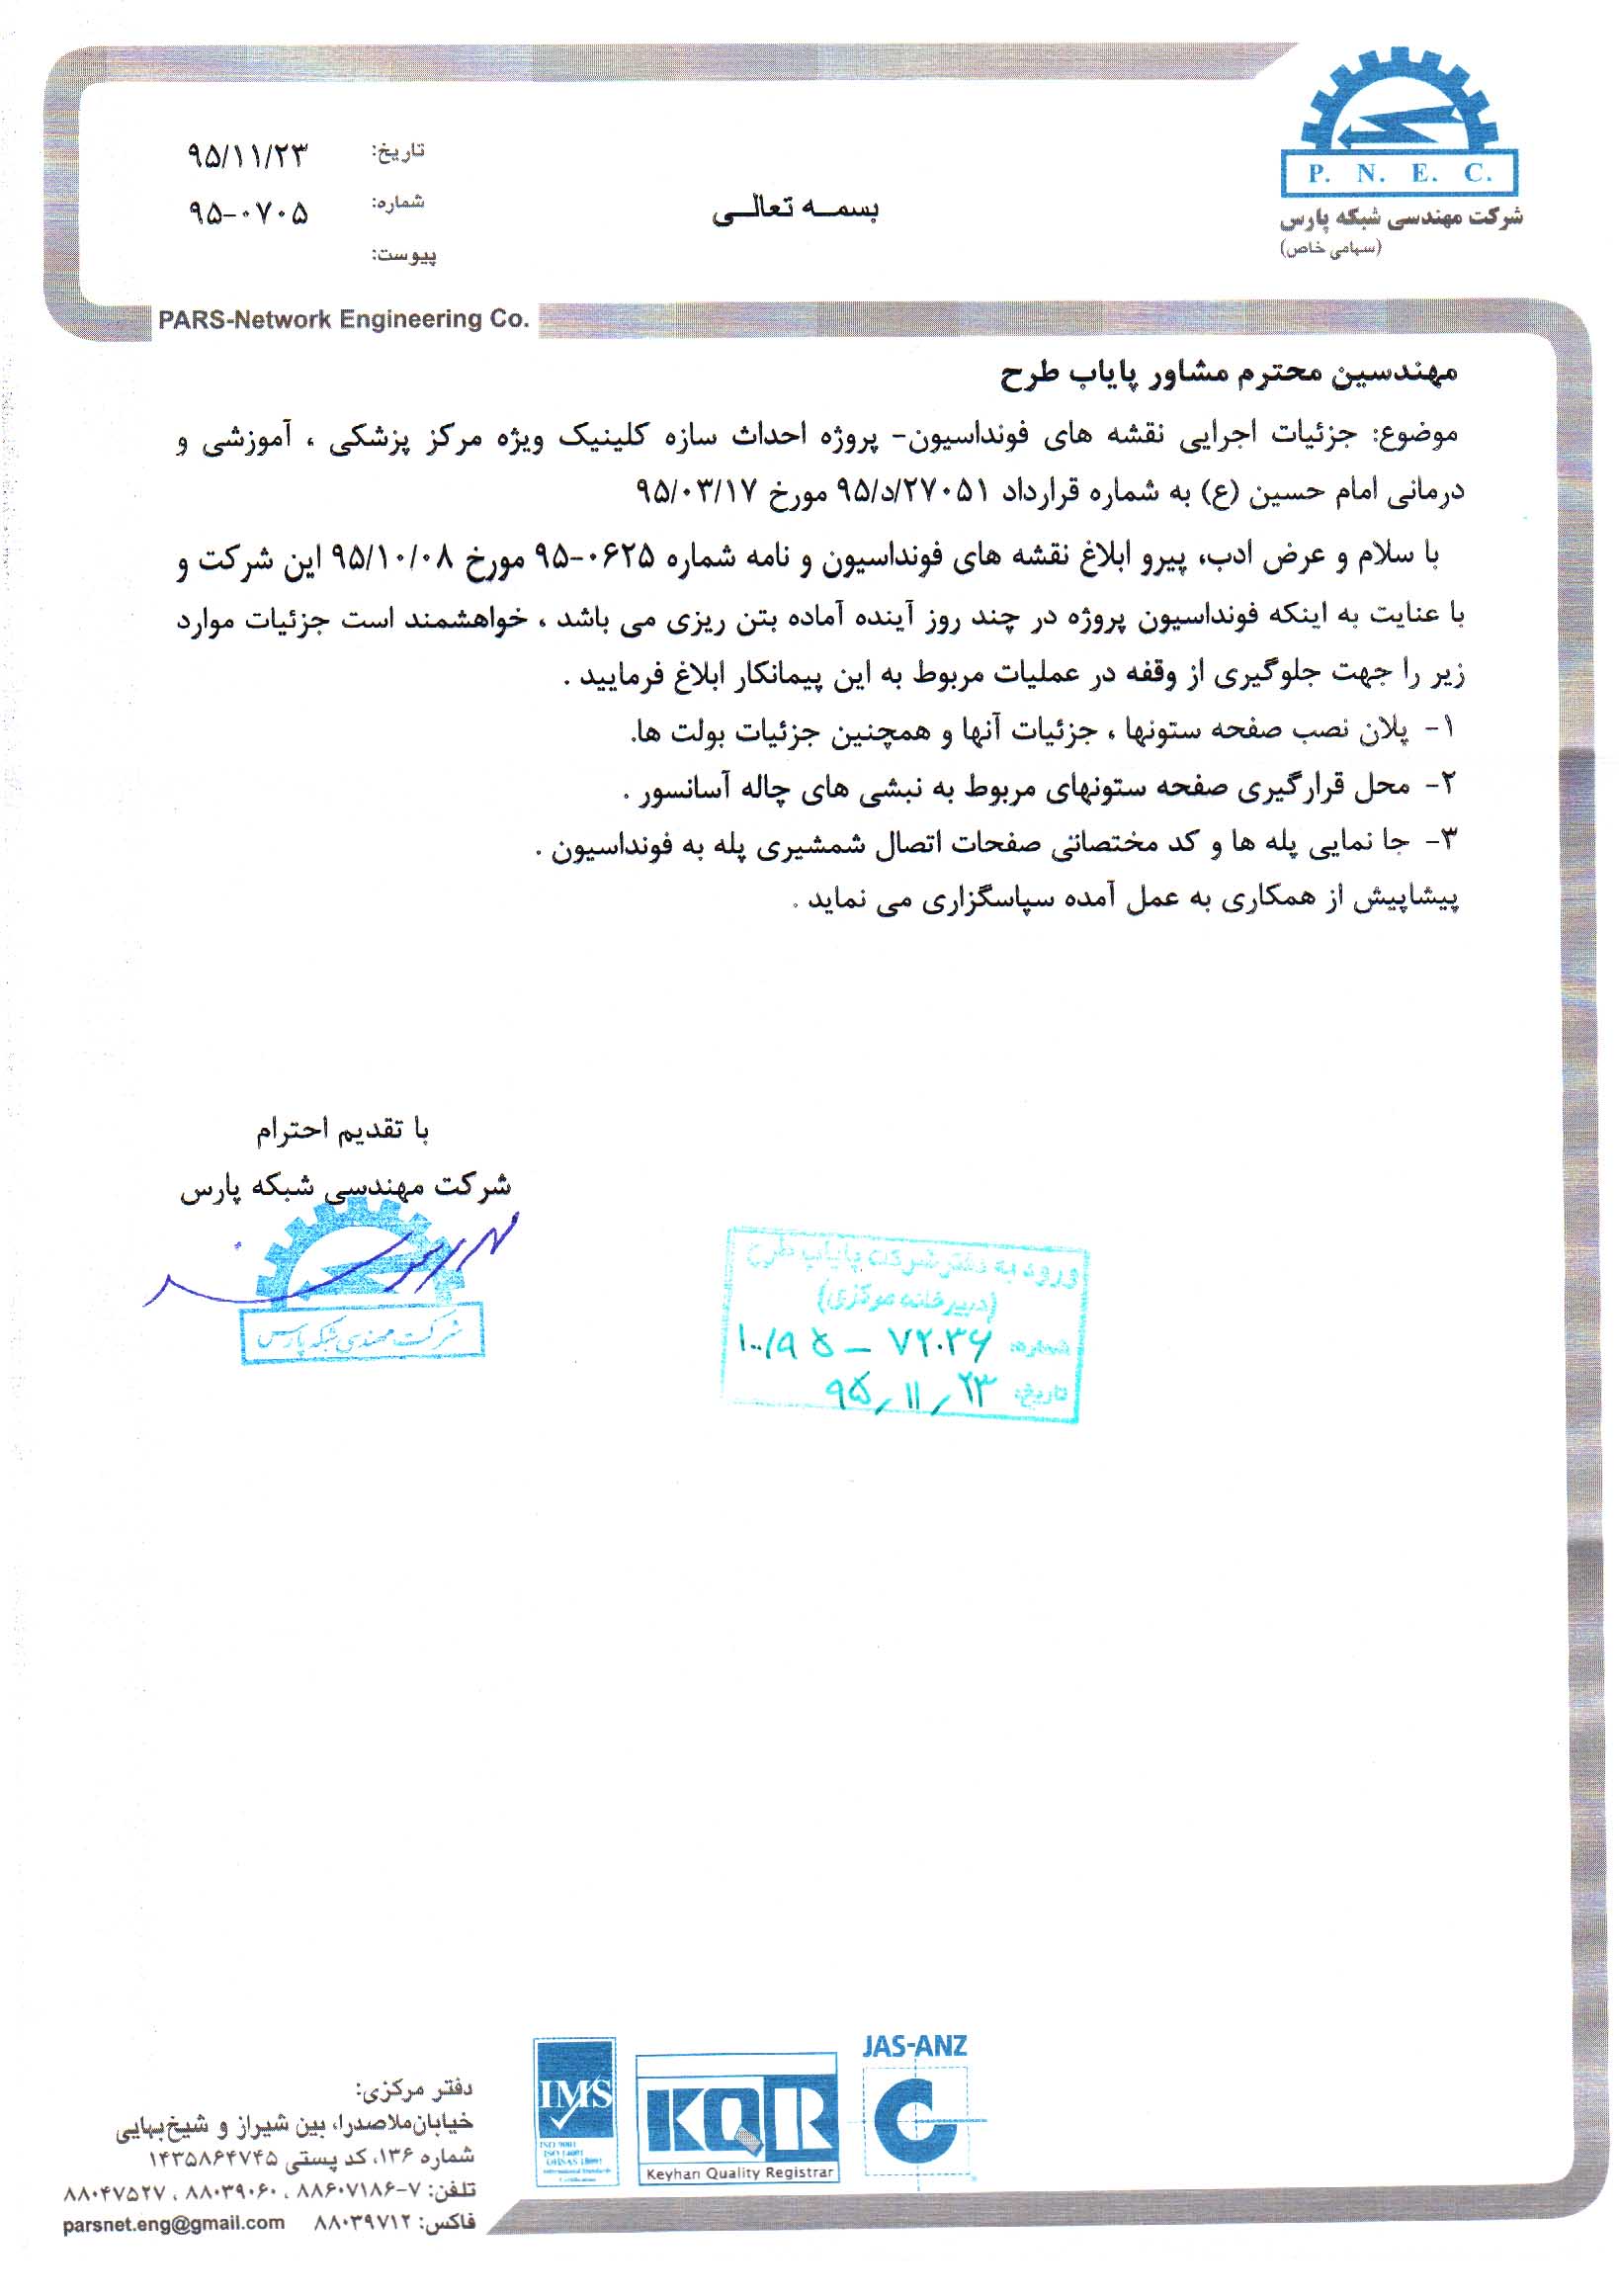 P. N. E. C.
شرکت مهندسی شبکه پارس
(سهامی خاص)
بسمـه تعالـی
تاریخ: ۹۵/۱۱/۲۳
شماره: ۹۵-۰۷۰۵
پیوست:
PARS-Network Engineering Co.
مهندسین محترم مشاور پایاب طرح
موضوع: جزئیات اجرایی نقشه های فونداسیون- پروژه احداث سازه کلینیک ویژه مرکز پزشکی ، آموزشی و
درمانی امام حسین (ع) به شماره قرارداد ۹۵/د/۲۷۰۵۱ مورخ ۹۵/۰۳/۱۷
با سلام و عرض ادب، پیرو ابلاغ نقشه های فونداسیون و نامه شماره ۰۶۲۵-۹۵ مورخ ۹۵/۱۰/۰۸ این شرکت و
با عنایت به اینکه فونداسیون پروژه در چند روز آینده آماده بتن ریزی می باشد ، خواهشمند است جزئیات موارد
زیر را جهت جلوگیری از وقفه در عملیات مربوط به این پیمانکار ابلاغ فرمایید .
۱- پلان نصب صفحه ستونها ، جزئیات آنها و همچنین جزئیات بولت ها.
۲- محل قرارگیری صفحه ستونهای مربوط به نبشی های چاله آسانسور .
۳- جا نمایی پله ها و کد مختصاتی صفحات اتصال شمشیری پله به فونداسیون .
پیشاپیش از همکاری به عمل آمده سپاسگزاری می نماید .
با تقدیم احترام
شرکت مهندسی شبکه پارس
شرکت مهندسی شبکه پارس
ورود به دفتر شرکت پایاب طرح
(دبیرخانه مرکزی)
شماره: ۱۰۰/۹۵ – ۷۲۰۳۶
تاریخ: ۹۵/۱۱/۲۳
JAS-ANZ
IMS
ISO 9001
ISO 14001
OHSAS 18001
International Standards
Certification
KQR
Keyhan Quality Registrar
دفتر مرکزی:
خیابان ملاصدرا، بین شیراز و شیخ‌بهایی
شماره ۱۳۶، کد پستی ۱۴۳۵۸۶۴۷۴۵
تلفن: ۷-۸۸۶۰۷۱۸۶ ، ۸۸۰۳۹۰۶۰ ، ۸۸۰۴۷۵۲۷
فاکس: ۸۸۰۳۹۷۱۲ parsnet.eng@gmail.com